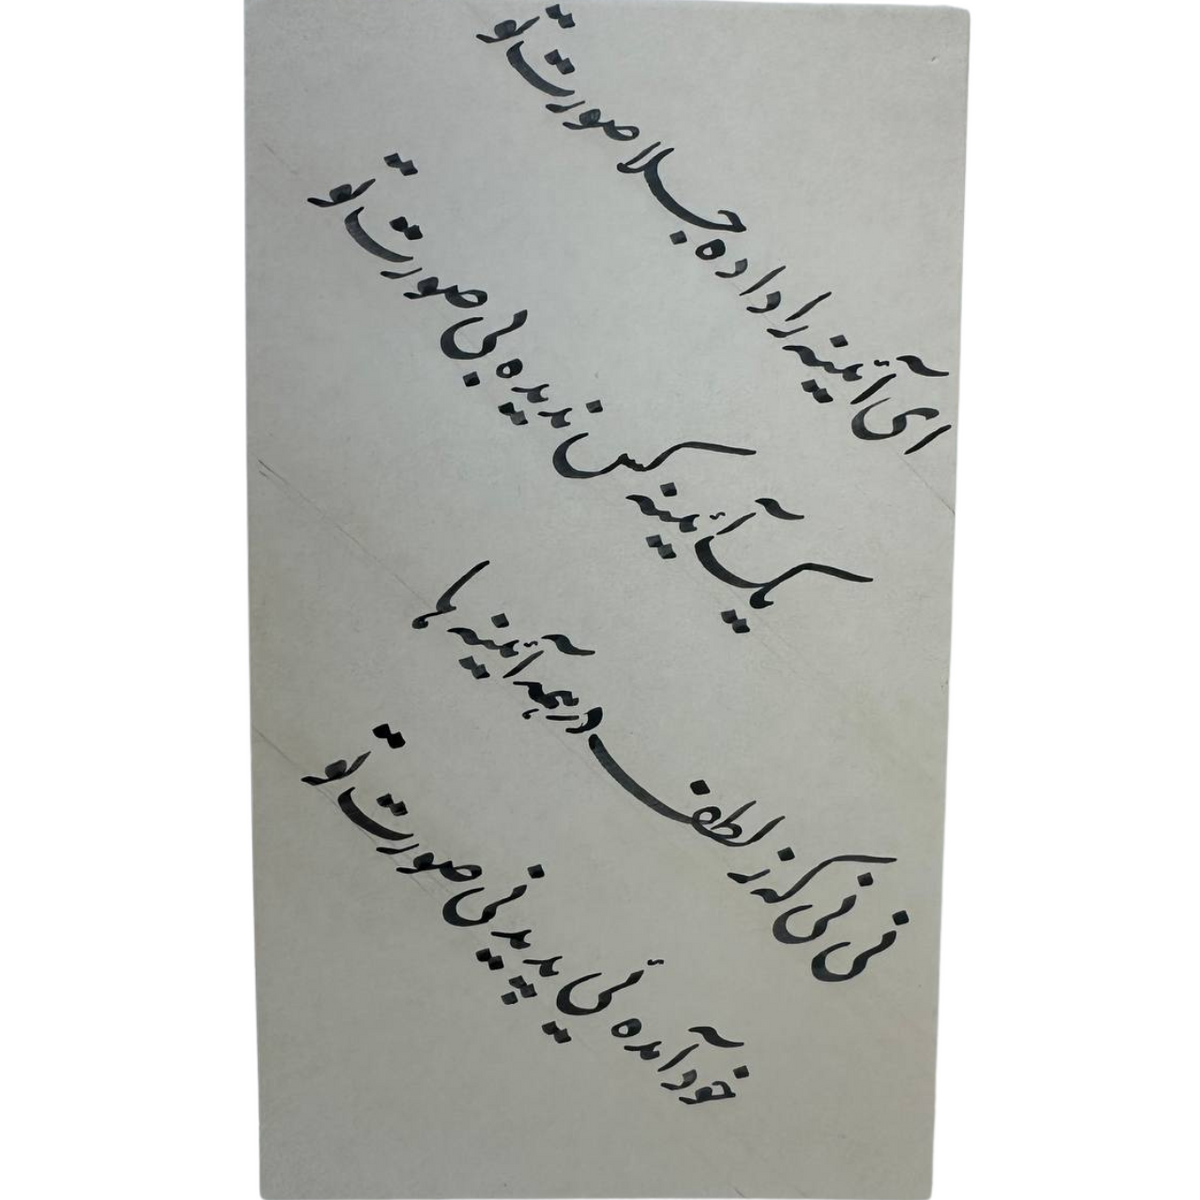 ای آئینه را داده جلا صورت تو
یک آئینه کس ندیده بی صورت تو
نی نی که ز لطف در همه آئینه ها
خود آمده ئی پدید نی صورت تو